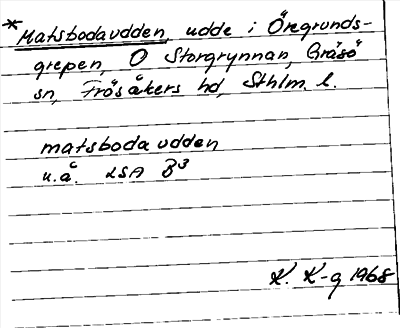 *Matsbodaudden, udde i Öregrunds-
grepen, O Storgrynnan, Gräsö
sn, Frösåkers hd, Sthlm. l.
matsboda udden
u.å. LSA B³
K. K-g 1968